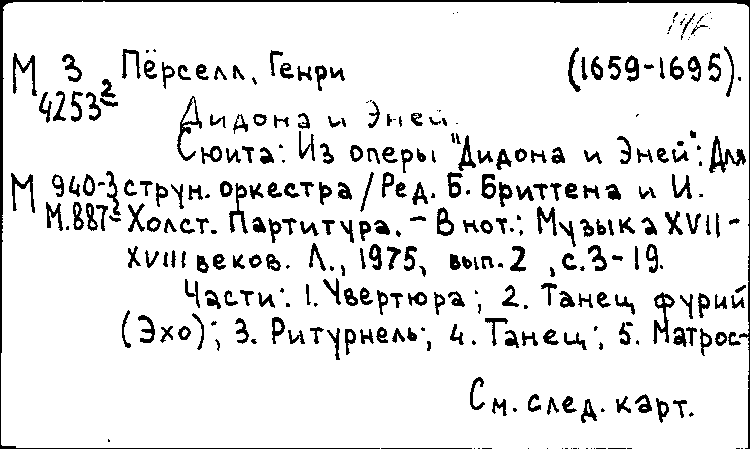 М 3 Пёрселл, Генри (1659-1695).
4253²
Дидона и Эней.
Сюита: Из оперы "Дидона и Эней": Для
М 940-3 струн. оркестра / Ред. Б. Бриттена и И.
М.887³ Холст. Партитура. – В нот.: Музыка XVII-
XVIII веков. Л., 1975, вып. 2, с. 3-19.
Части: 1. Увертюра; 2. Танец фурий
(Эхо); 3. Ритурнель; 4. Танец; 5. Матрос-
См. след. карт.